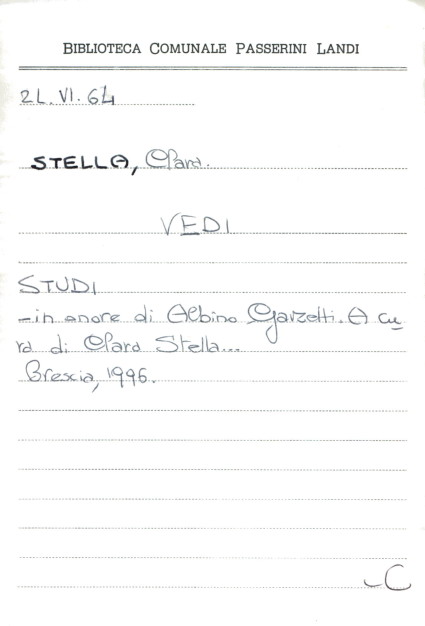 BIBLIOTECA COMUNALE PASSERINI LANDI
2L.VI.64
STELLA, Clara.
VEDI
STUDI
-in onore di Albino Garzetti. A cu
ra di Clara Stella...
Brescia, 1996.
C